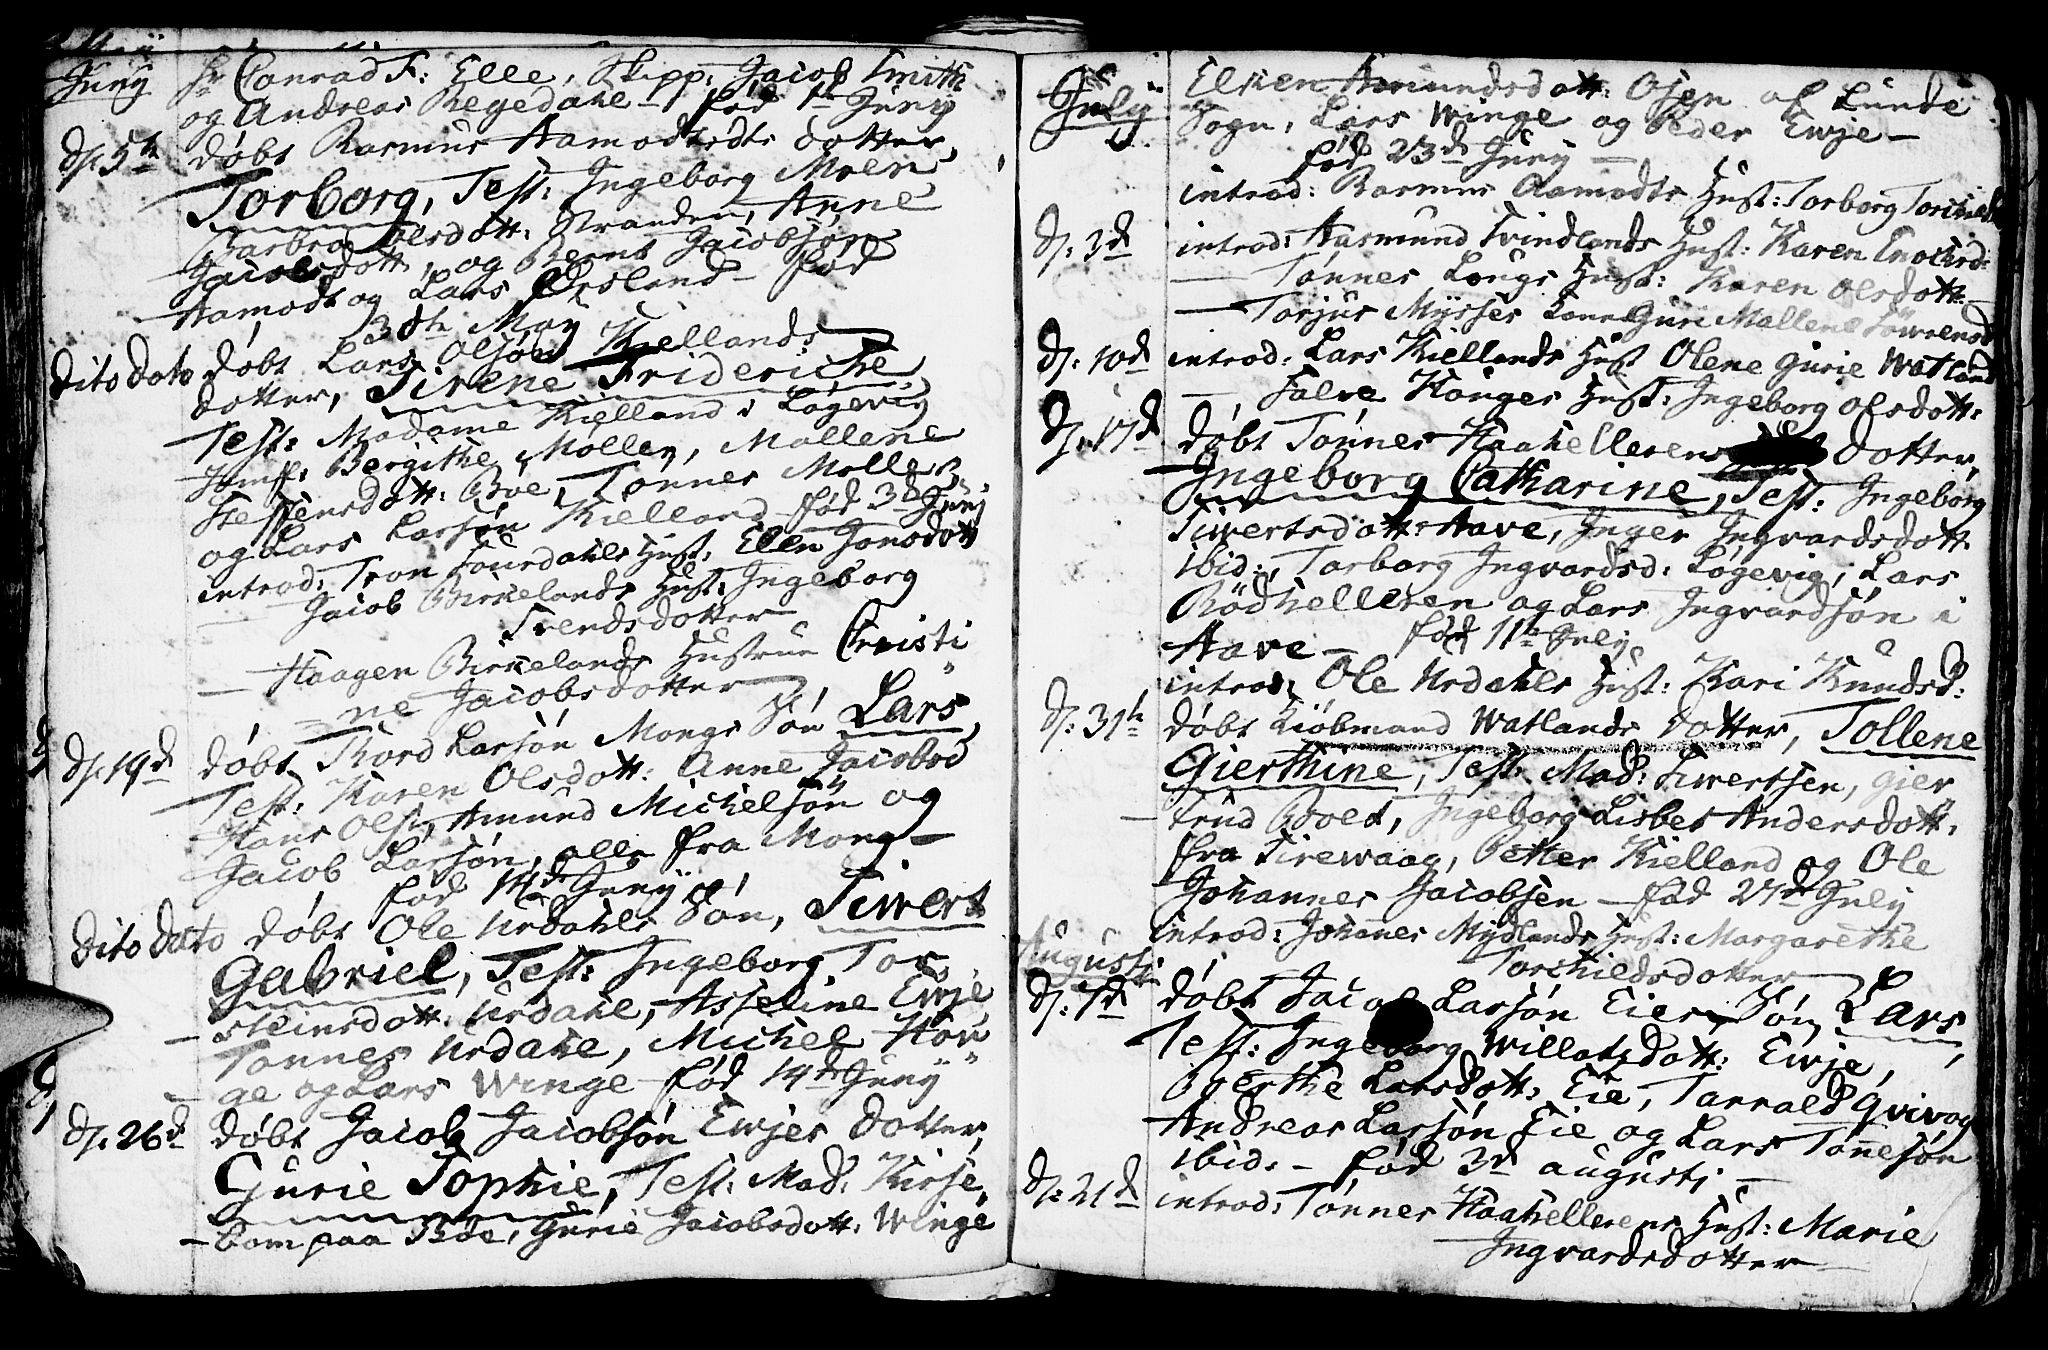 Juny
Hr Conrad F: Elle, Skipp: Jacob Smith
og Andreas Regedahl – fød 1te Juny
d: 5te døbt Rasmus Aamodtsdts dotter,
Torborg, Test: Ingeborg Moen
Barbroe Olsdott: Stranden, Anne
Jacobsdott, og Bernt Jacobsøn
Aamodt og Lars Ørsland – fød
30th May
dito dato døbt Lars Olsøn Kiellands
dotter, Sirene Frideriche,
Test: Madame Kielland i Løgevig
Jomf: Bergithe Møller, Mallene
Steffensdott: Bøe, Tønnes Møller
og Lars Larsøn Kielland – fød 3d Juny
introd: Tron Fourdahls Hust: Ellen Jonsdott
— Jacob Birkelands Hust: Ingeborg
Svendsdotter
— Haagen Birkelands Hustrue Christi
ne Jacobsdotter
d: 19d døbt Thord Larsøn Mongs Søn Lars,
Test: Karen Olsdott: Anne Jacobsd
Hans Ols:, Amund Michelsøn og
Jacob Larsøn, alle fra Mong –
fød 14d Juny
dito dato døbt Ole Urdahls Søn, Siwert
Gabriel, Test: Ingeborg Tor
steinsdott: Urdahl, Asseline Ewje
Tønnes Urdahl, Michel Hou
ge og Lars Winge – fød 14d Juny
d: 26d døbt Jacob Jacobsøn Ewjes dotter,
Gurie Sophie, Test: Mad: Kirse,
bom paa Bøe, Gurie Jacobsdott: Winge
July
Elken Amundsdott: Osen af Lunde
Sogn, Lars Winge og Peder Ewje –
fød 23d Juny –
introd: Rasmus Aamodts Hust: Torborg Torchields
d: 3d introd: Aasmund Svindlands Hust: Karen Enochsd:
— Tønnes Longs Hust: Karen Olsdott –
— Torjus Mysses Kone Guri Mallene Søwrensd
d: 10d introd: Lars Kiellands Hust Olene Gurie Watland
— Salve Hauges Hust: Ingeborg Olsdott:
d: 17d døbt Tønnes Haahellerens dotter,
Ingeborg Catharine, Test: Ingeborg
Siwertsdott: Aave, Inger Ingvardsdott
ibid:, Torborg Ingvardsd: Løgevig, Lars
Rødhelleren og Lars Ingvardsøn i
Aave – fød 11te July
introd: Ole Urdahls Hust: Kari Knudsd:
d: 31te døbt Kiøbmand Watlands Dotter, Tollene
Gierthine, Test: Mad: Siwertsen, Gier
trud Boed, Ingeborg Lisbet Andersdott:
fra Sirewaag, Petter Kielland og Ole
Johannes Jacobsen – fød 27d July
introd: Johanes Mydlands Hust: Margarethe
Torchieldsdotter
Augusti
d: 7d døbt Jacob Larsøn Eies Søn, Lars,
Test: Ingeborg Willatsdott: Ewje,
Berthe Larsdott: Eie, Tarrald Qvivog
Andreas Larsøn Eie og Lars Tønesøn
ibid: – fød 3d augusti –
d: 21d introd: Tønnes Haahellerens Hust: Marie
Ingvardsdotter